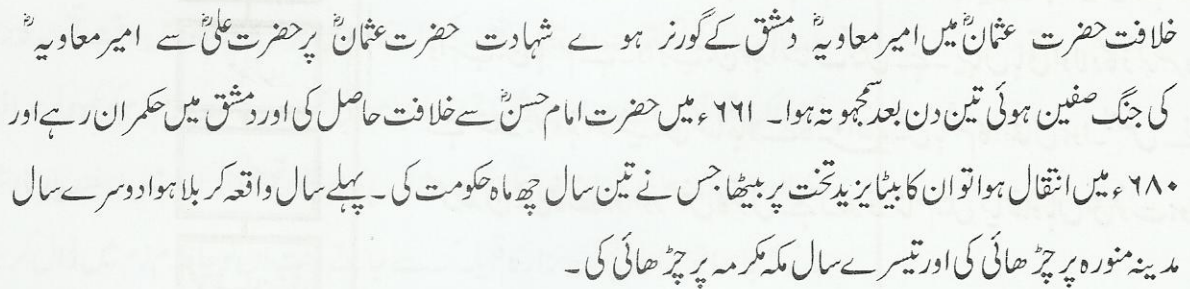 خلافت حضرت عثمانؓ میں امیر معاویہؓ دمشق کے گورنر ہو ے شہادت حضرت عثمانؓ پر حضرت علیؓ سے امیر معاویہؓ
کی جنگ صفین ہوئی تین دن بعد سمجہوتہ ہوا۔ ۶۶۱ء میں حضرت امام حسنؓ سے خلافت حاصل کی اور دمشق میں حکمران رہے اور
۶۸۰ء میں انتقال ہوا تو ان کا بیٹا یزید تخت پر بیٹھا جس نے تین سال چھ ماہ حکومت کی۔ پہلے سال واقعہ کربلا ہوا دوسرے سال
مدینہ منورہ پر چڑھائی کی اور تیسرے سال مکہ مکرمہ پر چڑھائی کی۔